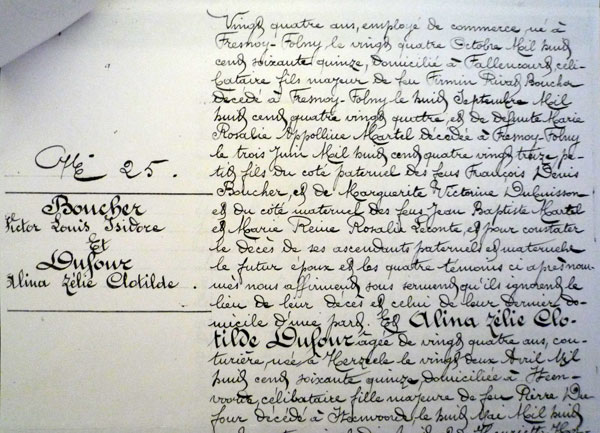 Vingt quatre ans, employé de commerce né à
Fresnoy-Folny le vingt quatre Octobre Mil huit
cent soixante quinze, domicilié à Fallencourt, céli-
bataire fils majeur de feu Firmin Rival Boucher
décédé à Fresnoy-Folny le huit Septembre Mil
huit cent quatre vingt quatre, et de défunte Marie
Rosalie Appolline Martel décédée à Fresnoy-Folny
le trois Juin Mil huit cent quatre vingt treize, pe-
tit fils du coté paternel des feus François Denis
Boucher, et de Marguerite Victorine Dubuisson
et du côté maternel des feus Jean Baptiste Martel
et Marie Reine Rosalie Leconte, et pour constater
le décès de ses ascendants paternels et maternels
le futur époux et les quatre témoins ci après nom-
més nous affirment sous serment qu'ils ignorent le
lieu de leur décès et celui de leur dernier do-
micile d'une part. Et Alina Zélie Clo-
tilde Dufour âgée de vingt quatre ans, cou-
turière, née à Herzeele le vingt deux Avril Mil
huit cent soixante quinze domiciliée à Steen-
voorde, célibataire fille majeure de feu Pierre Du
four décédé à le huit Mai Mil huit
N° 25.
Boucher
Victor Louis Isidore
Et
Dufour
Alina Zélie Clotilde